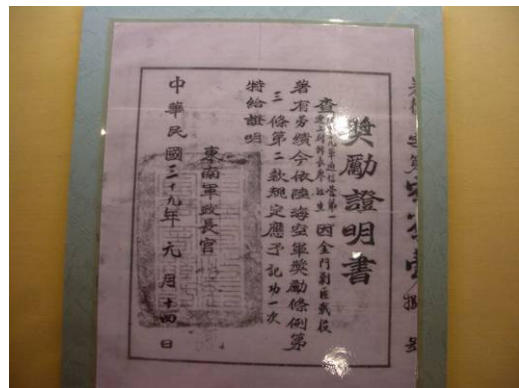 獎勵證明書
查 九軍通信營第一
因金門剿匪戰役
著有勞績今依陸海空軍獎勵條例第
三條第二款規定應予記功一次
特給證明
東南軍政長官
中華民國三十九年元月十四日